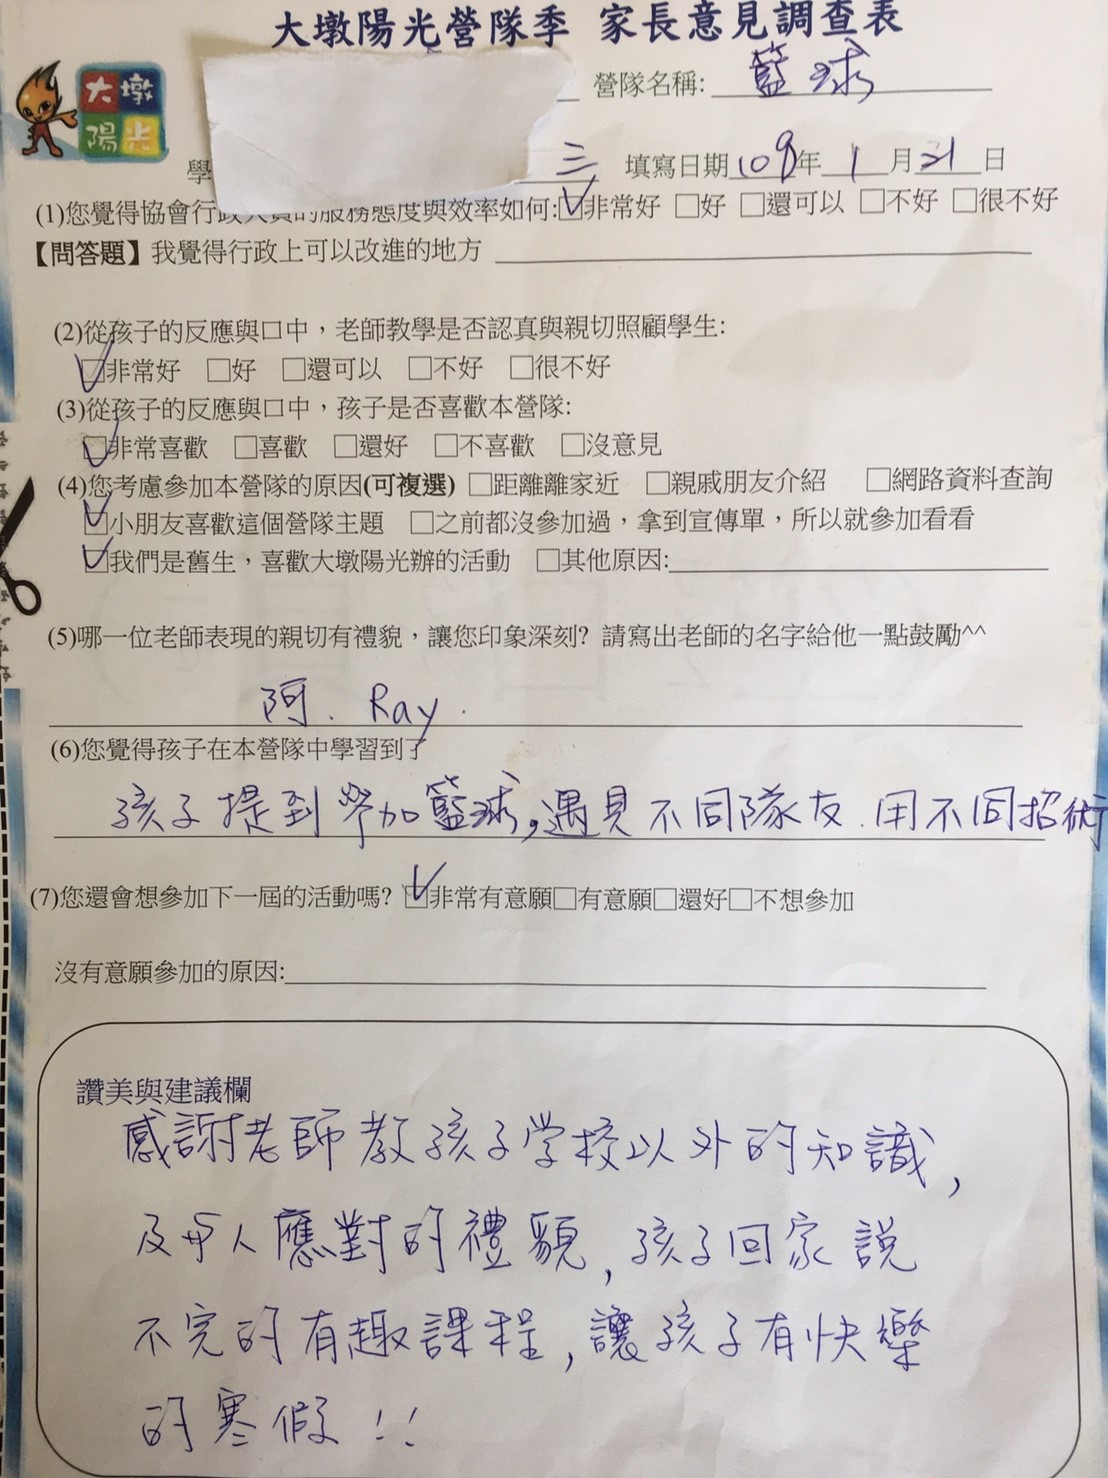 大墩陽光營隊季 家長意見調查表
大墩
陽光
營隊名稱: 籃球
學 三 填寫日期 109年 1 月 21 日
(1)您覺得協會行政人員的服務態度與效率如何:☑非常好 □好 □還可以 □不好 □很不好
【問答題】我覺得行政上可以改進的地方
(2)從孩子的反應與口中，老師教學是否認真與親切照顧學生:
☑非常好 □好 □還可以 □不好 □很不好
(3)從孩子的反應與口中，孩子是否喜歡本營隊:
☑非常喜歡 □喜歡 □還好 □不喜歡 □沒意見
(4)您考慮參加本營隊的原因(可複選) □距離離家近 □親戚朋友介紹 □網路資料查詢
☑小朋友喜歡這個營隊主題 □之前都沒參加過，拿到宣傳單，所以就參加看看
☑我們是舊生，喜歡大墩陽光辦的活動 □其他原因:
(5)哪一位老師表現的親切有禮貌，讓您印象深刻? 請寫出老師的名字給他一點鼓勵^^
阿. Ray.
(6)您覺得孩子在本營隊中學習到了
孩子提到參加籃球,遇見不同隊友.用不同招術
(7)您還會想參加下一屆的活動嗎? ☑非常有意願□有意願□還好□不想參加
沒有意願參加的原因:
讚美與建議欄
感謝老師教孩子学校以外的知識,
及与人應對的禮貌,孩子回家說
不完的有趣課程,讓孩子有快樂
的寒假!!